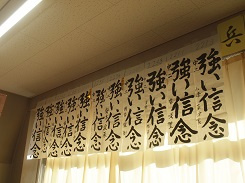 兵
強い信念
強い信念
強い信念
強い信念
強い信念
強い信念
強い信念
強い信念
強い信念
強い信念